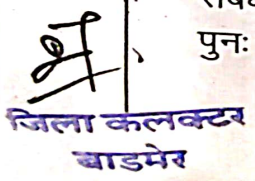 पुनः
जिला कलक्टर
बाडमेर